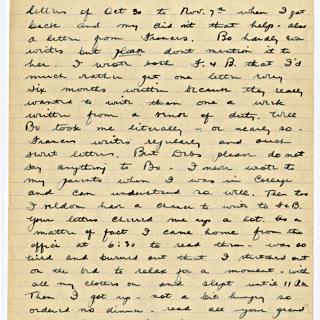 letters of Oct 30 to Nov. 7th when I got
back and my did that help - also
a letter from Frances. Bo hardly ever
writes but please dont mention it to
her. I wrote both F. & B. that I'd
much rather get one letter every
six months written because they really
wanted to write than one a week
written from a sense of duty. Well
Bo took me literally - or nearly so.
Frances writes regularly and such
sweet letters. But Debs please do not
say anything to Bo. I never wrote to
my parents when I was in College
and can understand so well. Then too
I seldom have a chance to write to F & B.
Your letters cheered me up a lot. As a
matter of fact I came home from the
office at 6:30 to read them - was so
tired and burned out that I stretched out
on the bed to relax for a moment - with
all my clothes on and slept until 11 PM.
Then I got up - not a bit hungry so
ordered no dinner - read all your grand